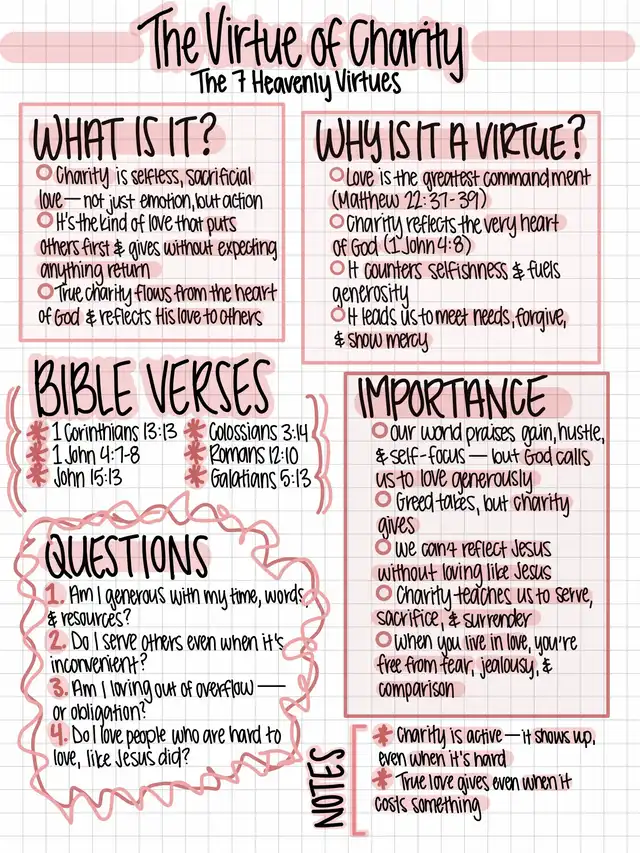 The Virtue of Charity
The 7 Heavenly Virtues
WHAT IS IT?
Charity is selfless, sacrificial
love — not just emotion, but action
It's the kind of love that puts
others first & gives without expecting
anything return
True charity flows from the heart
of God & reflects His love to others
WHY IS IT A VIRTUE?
Love is the greatest commandment
(Matthew 22:37-39)
Charity reflects the very heart
of God (1 John 4:8)
It counters selfishness & fuels
generosity
It leads us to meet needs, forgive,
& show mercy
BIBLE VERSES
* 1 Corinthians 13:13
* 1 John 4:7-8
* John 15:13
* Colossians 3:14
* Romans 12:10
* Galatians 5:13
IMPORTANCE
Our world praises gain, hustle,
& self-focus — but God calls
us to love generously
Greed takes, but charity
gives
We can't reflect Jesus
without loving like Jesus
Charity teaches us to serve,
sacrifice, & surrender
When you live in love, you're
free from fear, jealousy, &
comparison
QUESTIONS
1. Am I generous with my time, words,
& resources?
2. Do I serve others even when it's
inconvenient?
3. Am I loving out of overflow —
or obligation?
4. Do I love people who are hard to
love, like Jesus did?
NOTES
* Charity is active — it shows up,
even when it's hard
* True love gives even when it
costs something